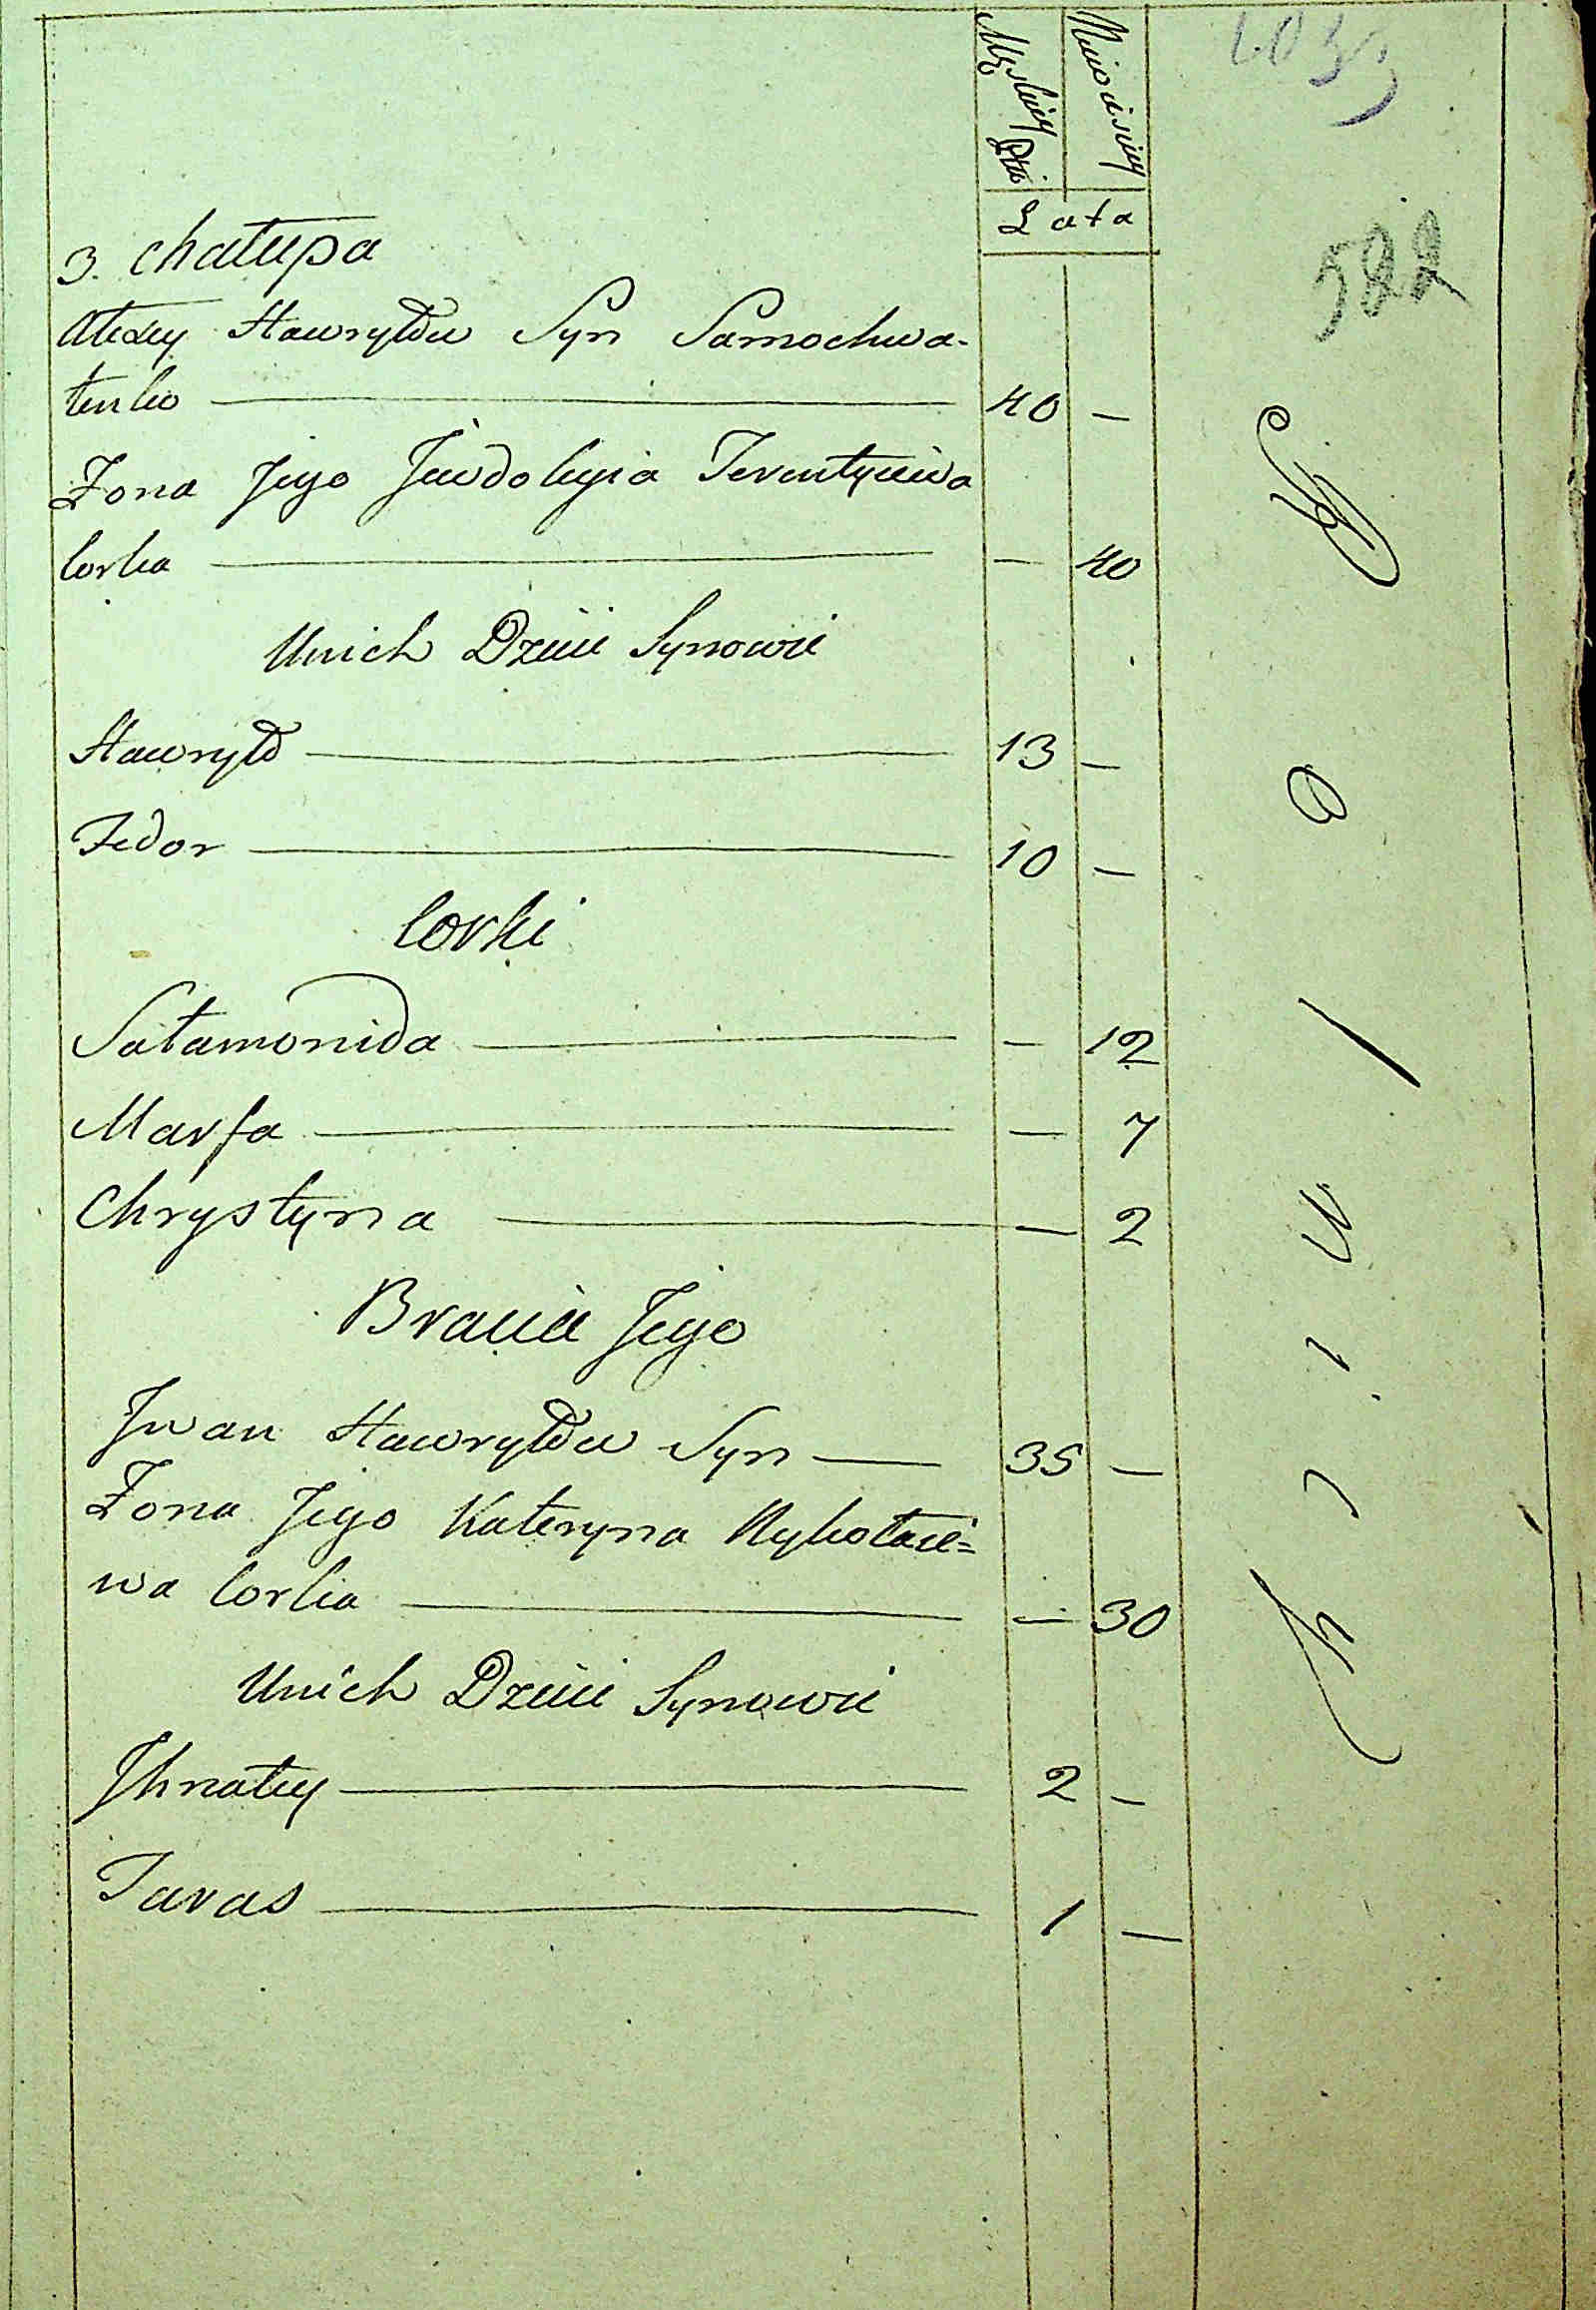 Męskiey Płci
Niewieściey
Lata
522
3. Chałupa
Alexey Hawryłow Syn Samochwa-
łenko — 40 —
Żona Jego Jewdokyia Terentyiewa
Corka — — 40
Unich Dzieci Synowie
Hawryło — 13 —
Fedor — 10 —
Corki
Sałamonida — — 12
Marfa — — 7
Chrystyna — — 2
Bracia Jego
Jwan Hawryłow Syn — 35 —
Żona Jego Kateryna Nykołaie=
wa Corka — — 30
Unich Dzieci Synowie
Jhnatey — 2 —
Taras — 1 —